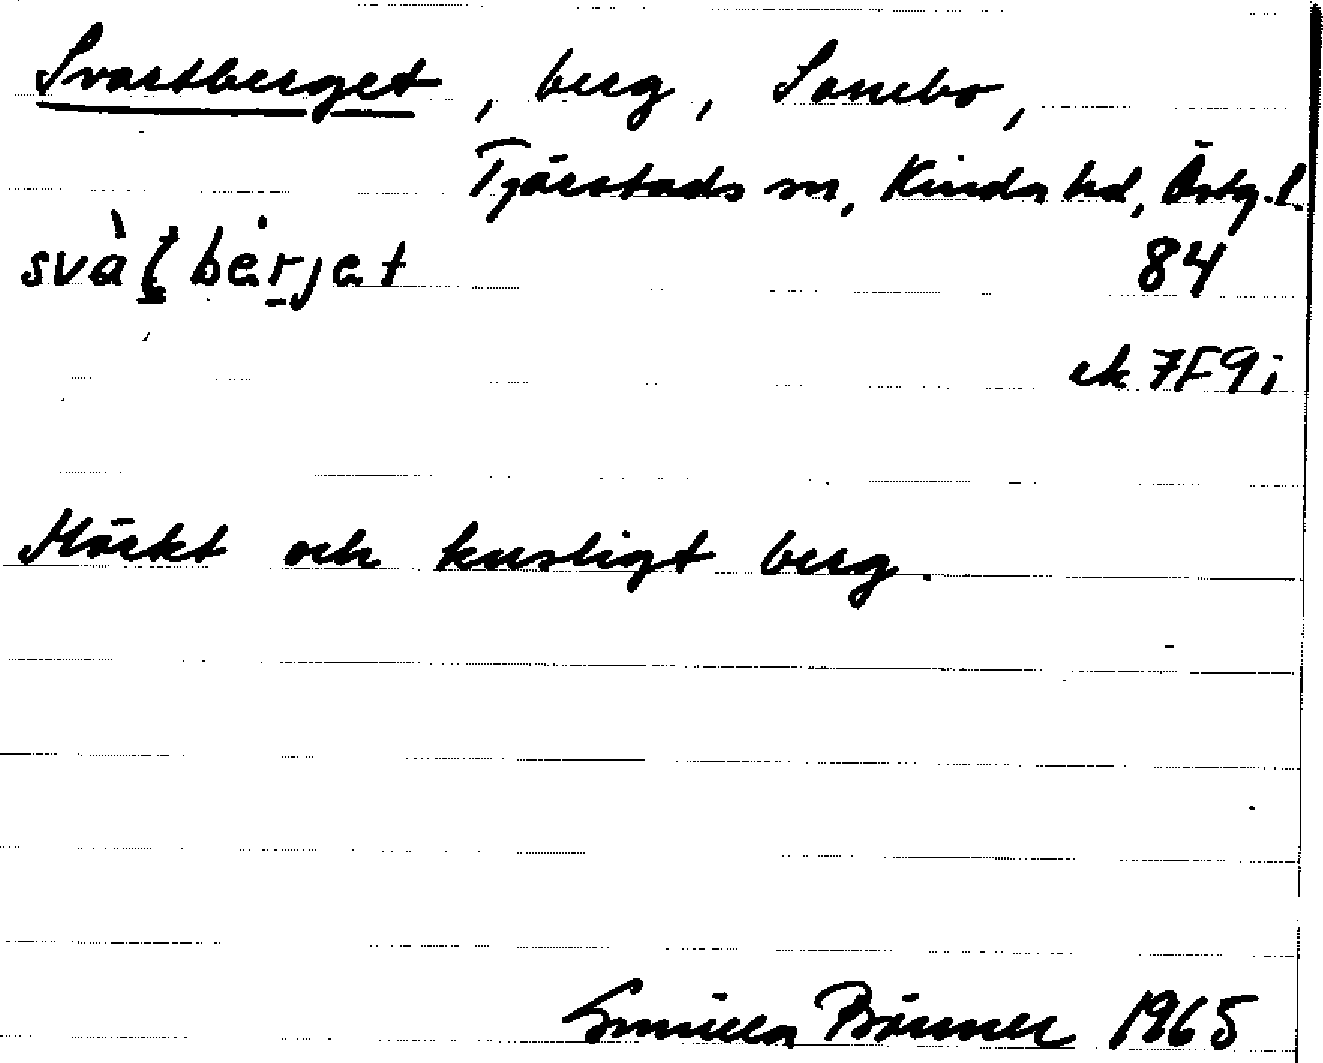 Svartberget, berg, Sanebo,
Tjärstads sn, Kinda hd, Östg. l.
svàʈbérjet 84
ek 7F9i
Mörkt och kusligt berg.
Gunilla Bänner 1965